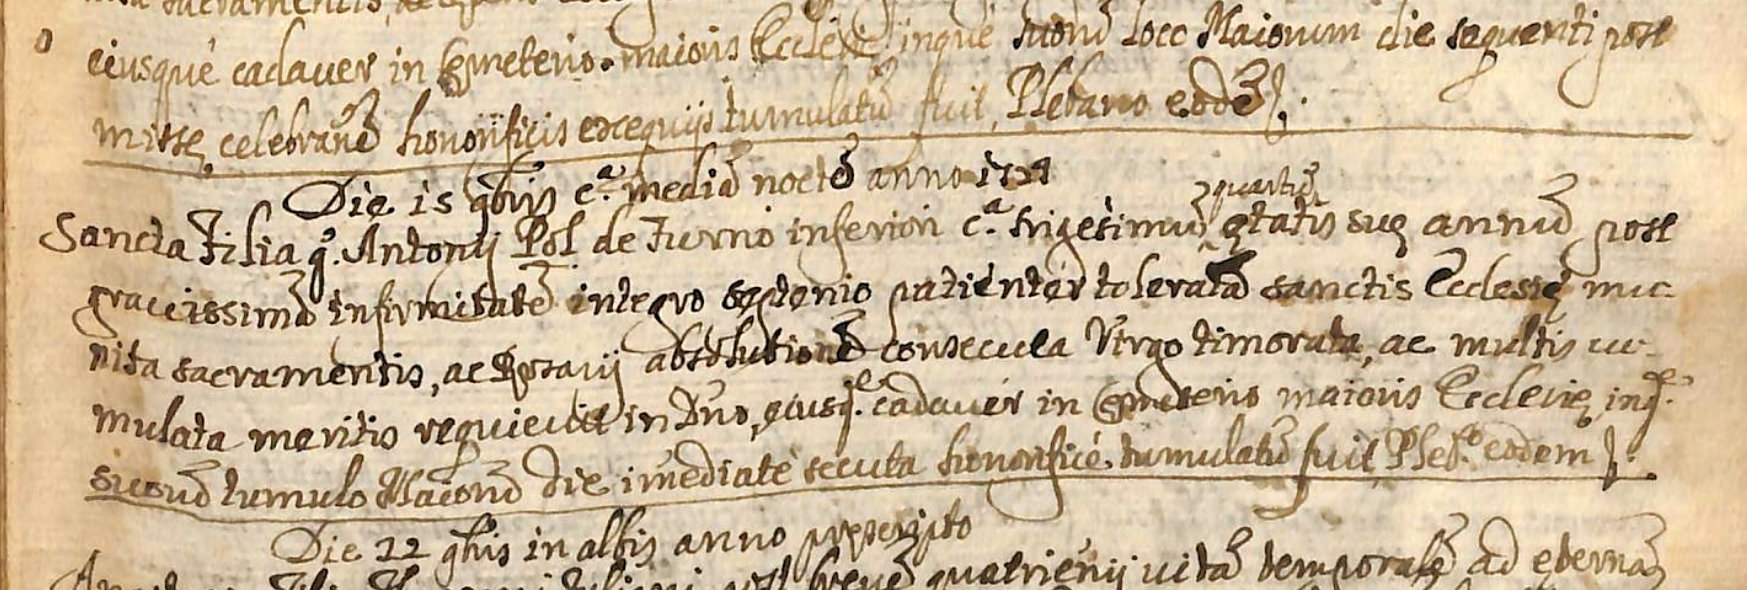 eiusque cadauer in Cęmeterio maioris Ecclesię inque suorū loco Maiorum die sequenti post
missę celebranē honorificis exequijs tumulatū fuit, Plebano eodē
Die 15 9bris c.ª mediā noctē anno
Sancta Filia q. Antonij Pol de Furno inferiori c.ª trigesimū quartū ętatis suę annū post
grauissimā infirmitatē integro septenio patienter toleratā sanctis Ecclesię mu-
nita sacramentis, ac Rosarij absolutionē consecuta Virgo timorata, ac multis cu-
mulata meritis requieuit in Dno, eiusq.e cadauer in Cęmeterio maioris Ecclesię inq.e
suorū tumulo Maiorū die imediatè secuta honorificè tumulatū fuit Pleb.o eodem
Die 22 9bris in albis anno pręscripto
post breuē quatrienij uitā temporalē ad ęternā